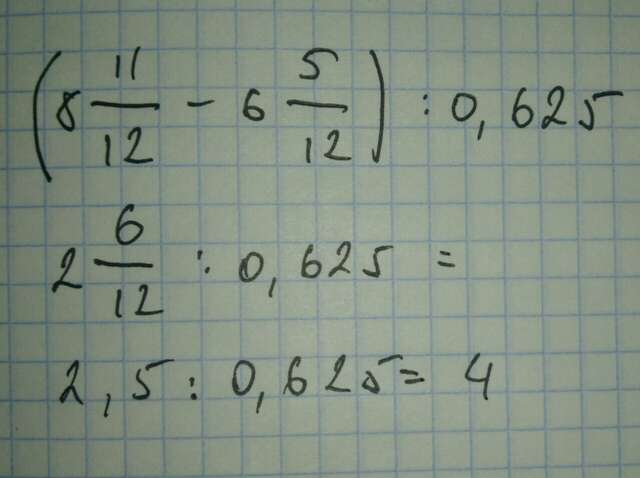 (8 11/12 - 6 5/12) : 0,625
2 6/12 : 0,625 =
2,5 : 0,625 = 4